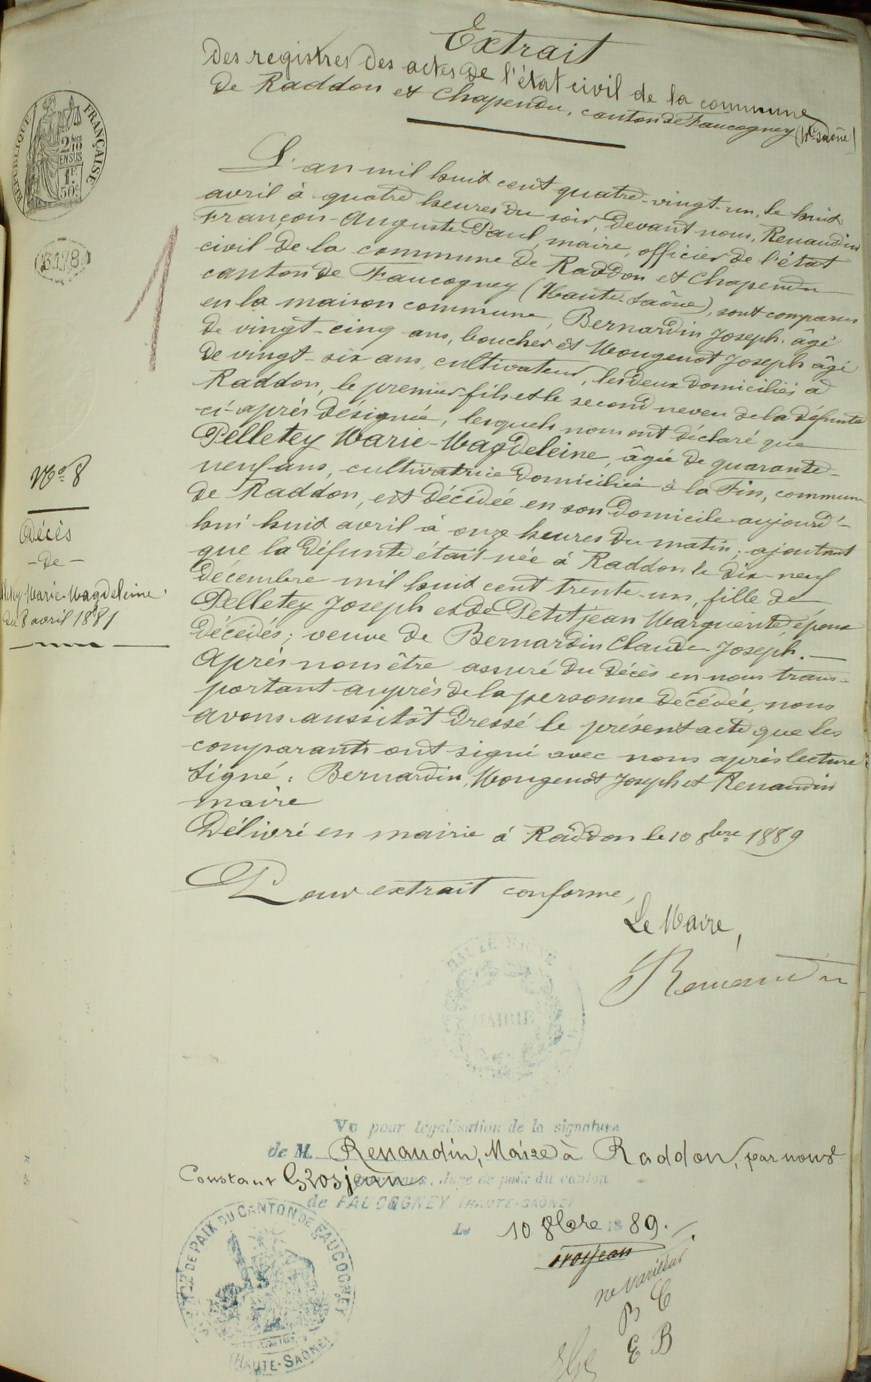 Extrait
Des registres des actes de l'état civil de la commune
de Raddon et Chapendu, canton de Faucogney (Hte Saône)
RÉPUBLIQUE FRANÇAISE
L'an mil huit cent quatre-vingt-un, le huit
avril à quatre heures du soir, devant nous, Renaudin
François-Auguste-Paul, maire, officier de l'état
civil de la commune de Raddon et Chapendu
canton de Faucogney (Haute-Saône), sont comparus
en la maison commune, Bernardin Joseph âgé
de vingt-cinq ans, boucher et Mougenot Joseph âgé
de vingt-six ans, cultivateur, les deux domiciliés à
Raddon, le premier fils et le second neveu de la défunte
ci-après désignée, lesquels nous ont déclaré que
Pelletey Marie-Magdeleine, âgée de quarante-
neuf ans, cultivatrice domiciliée à la Fin, commune
de Raddon, est décédée en son domicile aujourd'-
hui huit avril à onze heures du matin; ajoutant
que la défunte était née à Raddon le dix-neuf
décembre mil huit cent trente-un, fille de
Pelletey Joseph et de Petitjean Marguerite, époux
décédés; veuve de Bernardin Claude-Joseph.
Après nous être assuré du décès en nous trans-
portant auprès de la personne décédée, nous
avons aussitôt dressé le présent acte que les
comparants ont signé avec nous après lecture
Signé: Bernardin, Mougenot Joseph et Renaudin
maire
Délivré en mairie à Raddon le 10 8bre 1889
Pour extrait conforme,
Le Maire,
Renaudin
No 8
Décès
-de-
Marie-Magdeleine
du 8 avril 1881
MAIRIE
Vu pour légalisation de la signature
de M. Renaudin, Maire à Raddon, par nous
Constant Grosjean, Juge de paix du canton
de FAUCOGNEY (HAUTE-SAONE)
Le 10 8bre 1889.
Grosjean
ne varietur
B C
E B
DE PAIX DU CANTON DE FAUCOGNEY
(HAUTE-SAONE)